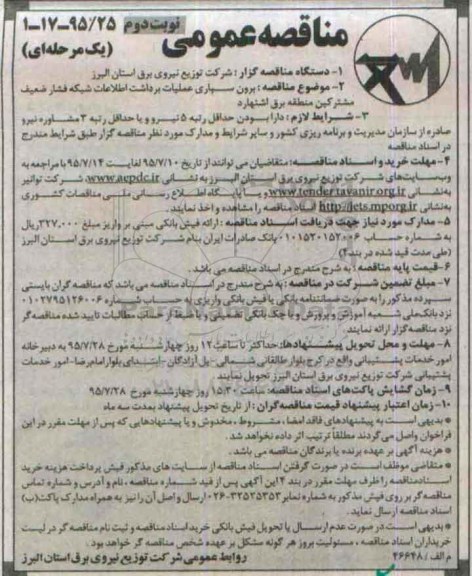 مناقصه عمومی
نوبت دوم ۹۵/۲۵-۱۷-۱
(یک مرحله‌ای)
۱- دستگاه مناقصه گزار : شرکت توزیع نیروی برق استان البرز
۲- موضوع مناقصه : برون سپاری عملیات برداشت اطلاعات شبکه فشار ضعیف
مشترکین منطقه برق اشتهارد
۳- شرایط لازم : دارا بودن حداقل رتبه ۵ نیرو و یا حداقل رتبه ۳ مشاوره نیرو
صادره از سازمان مدیریت و برنامه ریزی کشور و سایر شرایط و مدارک مورد نظر مناقصه گزار طبق شرایط مندرج
در اسناد مناقصه
۴- مهلت خرید و اسناد مناقصه : متقاضیان می توانند از تاریخ ۹۵/۷/۱۰ لغایت ۹۵/۷/۱۴ با مراجعه به
وب‌سایت‌های شرکت توزیع نیروی برق استان البرز به نشانی www.aepdc.ir، شرکت توانیر
به نشانی www.tender.tavanir.org.ir و یا پایگاه اطلاع رسانی ملی مناقصات کشوری
به نشانی http://iets.mporg.ir اسناد مناقصه را مشاهده و اخذ نمایند .
۵- مدارک مورد نیاز جهت دریافت اسناد مناقصه : ارائه فیش بانکی مبنی بر واریز مبلغ ۳۲۷,۰۰۰ ریال
به شماره حساب ۰۱۰۱۵۳۰۱۵۲۰۰۶ بانک صادرات ایران بنام شرکت توزیع نیروی برق استان البرز
(طی مدت قید شده در بند ۴)
۶- قیمت پایه مناقصه : به شرح مندرج در اسناد مناقصه می باشد .
۷- مبلغ تضمین شرکت در مناقصه : به شرح مندرج در اسناد مناقصه می باشد که مناقصه گران بایستی
سپرده مذکور را به صورت ضمانتنامه بانکی یا فیش بانکی واریزی به حساب شماره ۰۱۰۲۷۹۵۱۲۶۰۰۶
نزد بانک ملی شعبه آموزش و پرورش و یا چک بانکی تضمینی و یا ضبط از حساب مطالبات تایید شده مناقصه گر
نزد مناقصه گزار ارائه نمایند .
۸- مهلت و محل تحویل پیشنهادها: حداکثر تا ساعت ۱۲ روز چهارشنبه مورخ ۹۵/۷/۲۸ به دبیرخانه
امور خدمات پشتیبانی واقع در کرج بلوار طالقانی شمالی - پل آزادگان - ابتدای بلوار امام رضا - امور خدمات
پشتیبانی شرکت توزیع نیروی برق استان البرز تحویل نمایند
۹- زمان گشایش پاکت‌های اسناد مناقصه: ساعت ۱۵:۳۰ روز چهارشنبه مورخ ۹۵/۷/۲۸
۱۰- زمان اعتبار پیشنهاد قیمت مناقصه گران : از تاریخ تحویل پیشنهاد بمدت سه ماه
* بدیهی است به پیشنهادهای فاقد امضاء ، مشروط ، مخدوش و یا پیشنهادهایی که پس از مهلت مقرر در این
فراخوان واصل می گردند مطلقاً ترتیب اثر داده نخواهد شد .
* هزینه آگهی بر عهده برنده یا برندگان مناقصه می باشد .
* متقاضی موظف است در صورت گرفتن اسناد مناقصه از سایت های مذکور فیش پرداخت هزینه خرید
اسناد مناقصه را ظرف مهلت مقرر در بند ۲ این آگهی پس از قید شماره مناقصه ، نام و آدرس و شماره تماس
مناقصه گر بر روی فیش مذکور به شماره نمابر ۳۲۵۲۵۳۵۳-۰۲۶ ارسال و اصل آن را نیز به همراه مدارک پاکت (ب)
اسناد مناقصه ارسال نماید .
* بدیهی است در صورت عدم ارسال یا تحویل فیش بانکی خرید اسناد مناقصه و ثبت نام مناقصه گر در لیست
خریداران اسناد مناقصه ، مسئولیت بروز هر گونه مشکل بر عهده شخص مناقصه گر خواهد بود .
م الف / ۴۶۶۴۸
روابط عمومی شرکت توزیع نیروی برق استان البرز